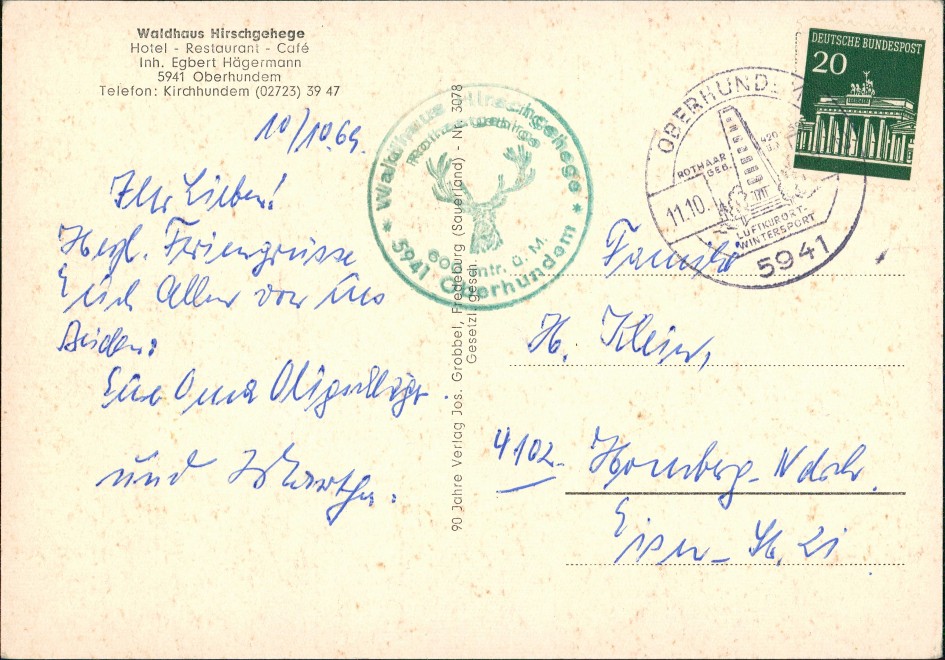 Waldhaus Hirschgehege
Hotel - Restaurant - Café
Inh. Egbert Hägermann
5941 Oberhundem
Telefon: Kirchhundem (02723) 39 47
10/10.69.
Ihr Lieben!
Hrzl. Feriengrüsse
Euch Allen von uns
Beiden.
Eure Oma
und Martha.
90 Jahre Verlag Jos. Grobbel, Fredeburg (Sauerland) - Nr. 3078
Gesetzl. gesch.
Waldhaus Hirschgehege
Rothaargebirge
600 mtr. ü. M.
* 5941 Oberhundem *
OBERHUNDEM
ROTHAAR
GEB.
11.10.
LUFTKURORT
WINTERSPORT
5941
DEUTSCHE BUNDESPOST
20
Familie
H. Klein,
4102. Homberg-Ndrh.